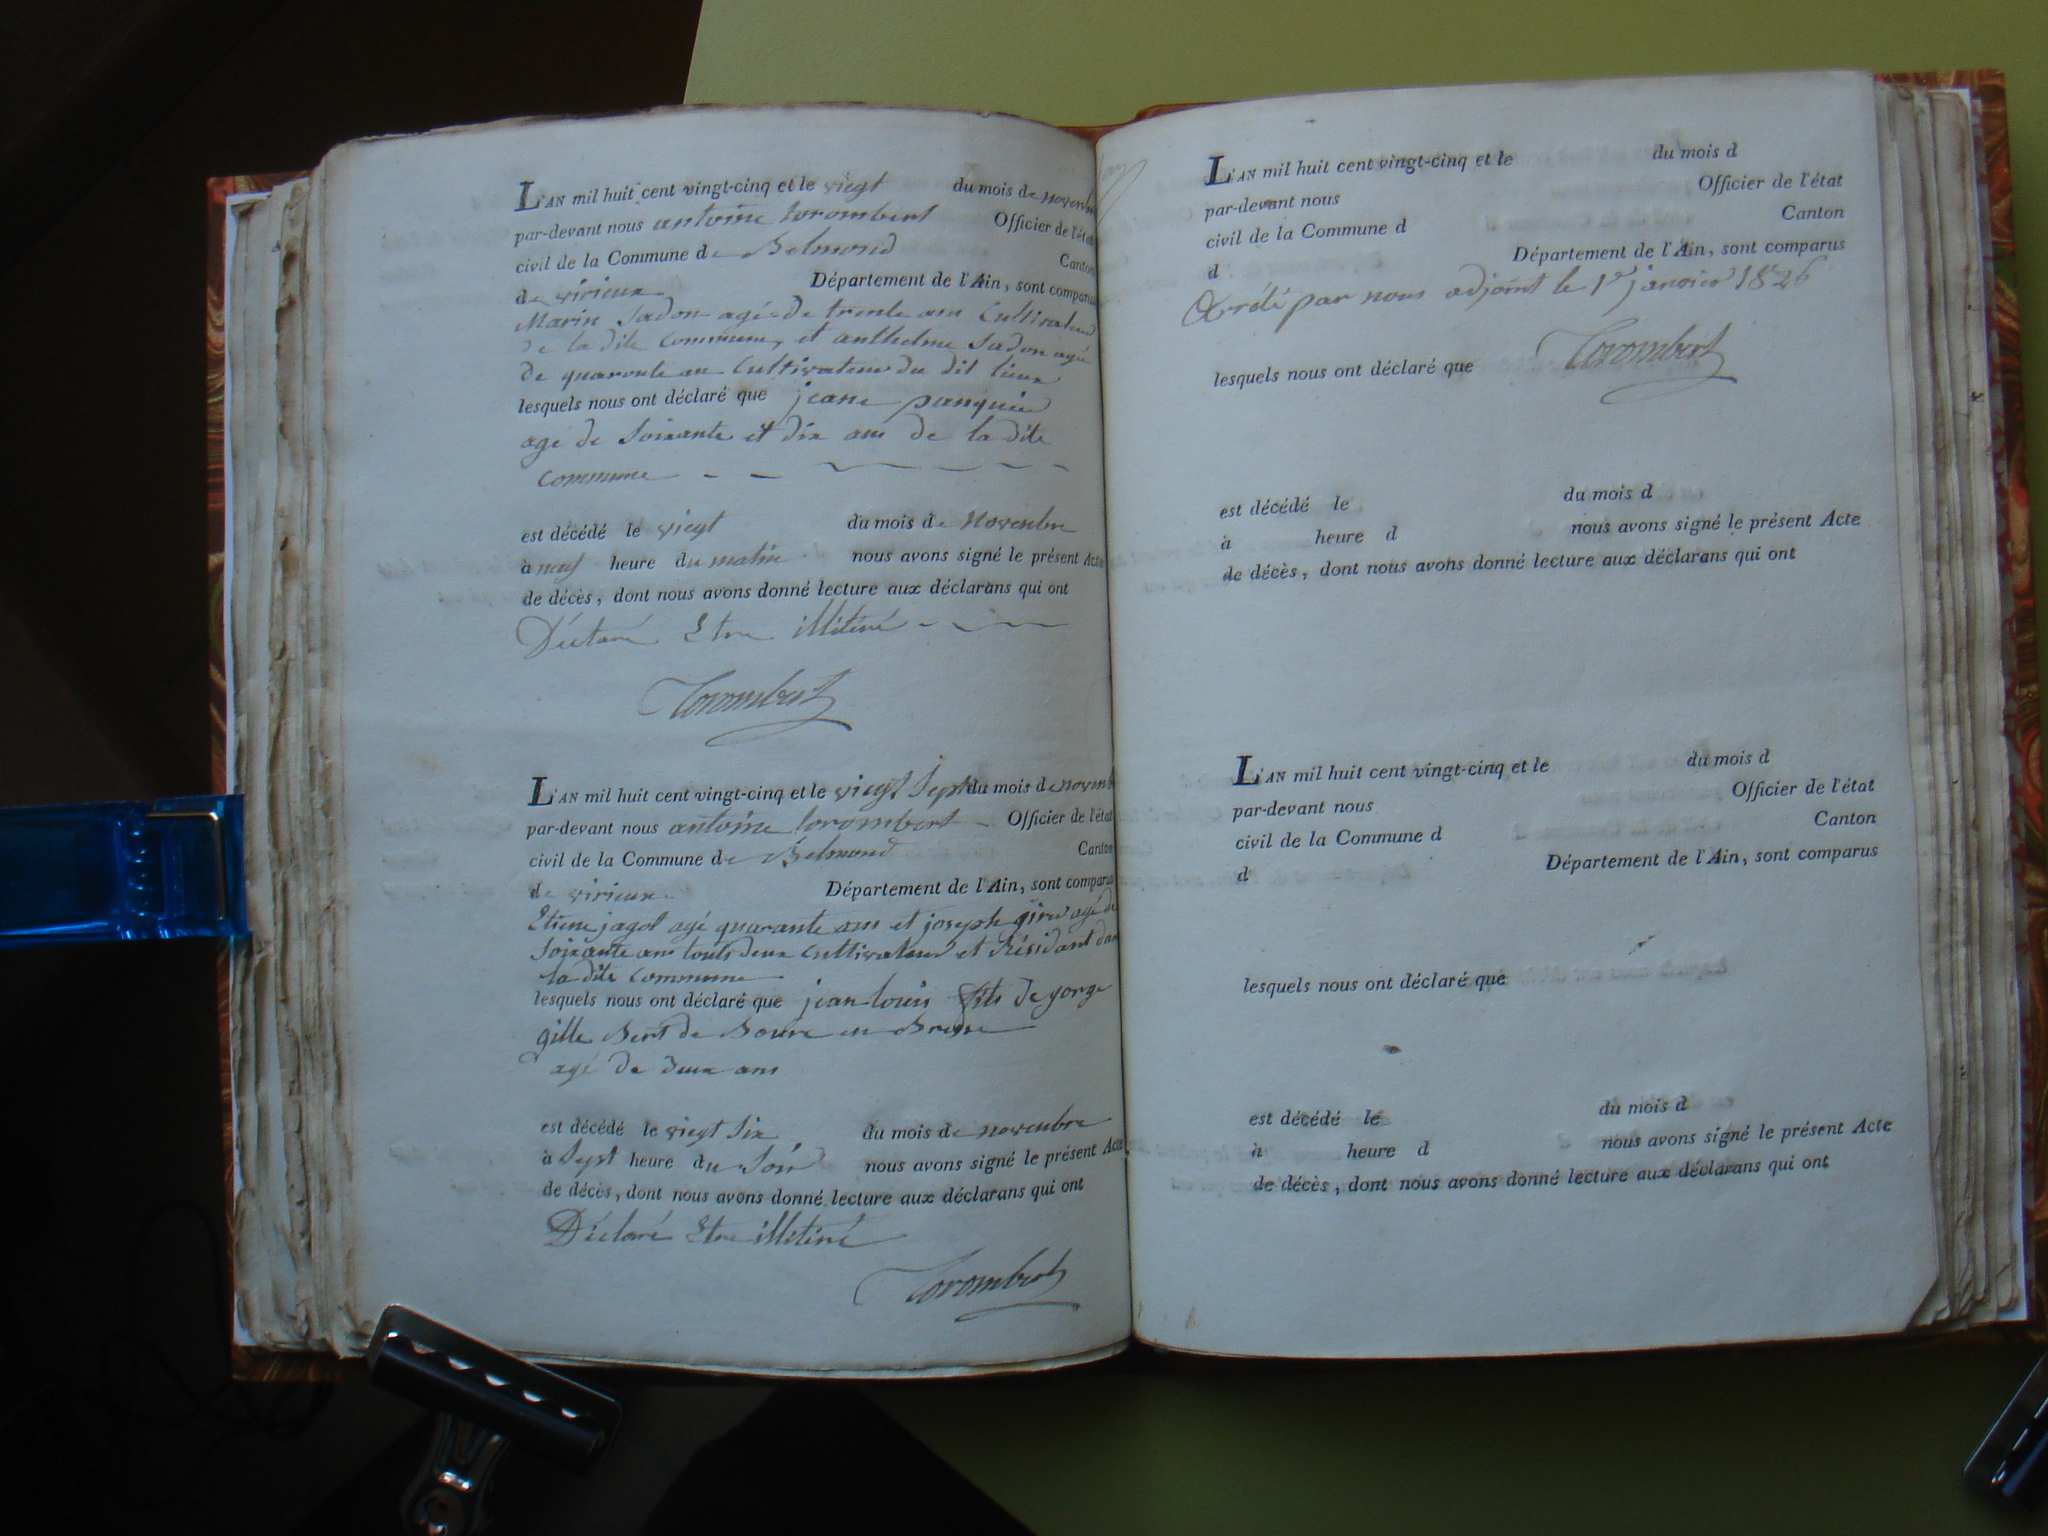 L'AN mil huit cent vingt-cinq et le viegt du mois de novembre
par-devant nous antoine torombert Officier de l'état
civil de la Commune de Belmond Canton
de virieux Département de l'Ain, sont comparus
Marin Jadon agé de trente ans Cultivateur
de la dite Commune, et anthelme Jadon agé
de quarante an Cultivateur du dit lieux
lesquels nous ont déclaré que jeane
age de soixante et dix ans de la dite
commune
est décédé le viegt du mois de Novembre
à neuf heure du matin nous avons signé le présent Acte
de décès, dont nous avons donné lecture aux déclarans qui ont
Déclaré Etre illitéré
Torombert
L'AN mil huit cent vingt-cinq et le viegt sept du mois de novemb
par-devant nous antoine torombert Officier de l'état
civil de la Commune de Belmond Canton
de virieux Département de l'Ain, sont comparus
Etiene jagot agé quarante ans et joseph agé de
soixante ans touts deux cultivateur et Résidant dan
la dite commune
lesquels nous ont déclaré que jean louis fils de gorge
gille de Bourc en Bresse
agé de deux ans
est décédé le viegt six du mois de novembre
à sept heure du soir nous avons signé le présent Acte
de décès, dont nous avons donné lecture aux déclarans qui ont
Déclaré Etre illitéré
Torombert
L'AN mil huit cent vingt-cinq et le du mois d
par-devant nous Officier de l'état
civil de la Commune d Canton
d Département de l'Ain, sont comparus
par nous adjoint le 1er janvier 1826
Torombert
lesquels nous ont déclaré que
est décédé le du mois d
à heure d nous avons signé le présent Acte
de décès, dont nous avons donné lecture aux déclarans qui ont
L'AN mil huit cent vingt-cinq et le du mois d
par-devant nous Officier de l'état
civil de la Commune d Canton
d Département de l'Ain, sont comparus
lesquels nous ont déclaré que
est décédé le du mois d
à heure d nous avons signé le présent Acte
de décès, dont nous avons donné lecture aux déclarans qui ont